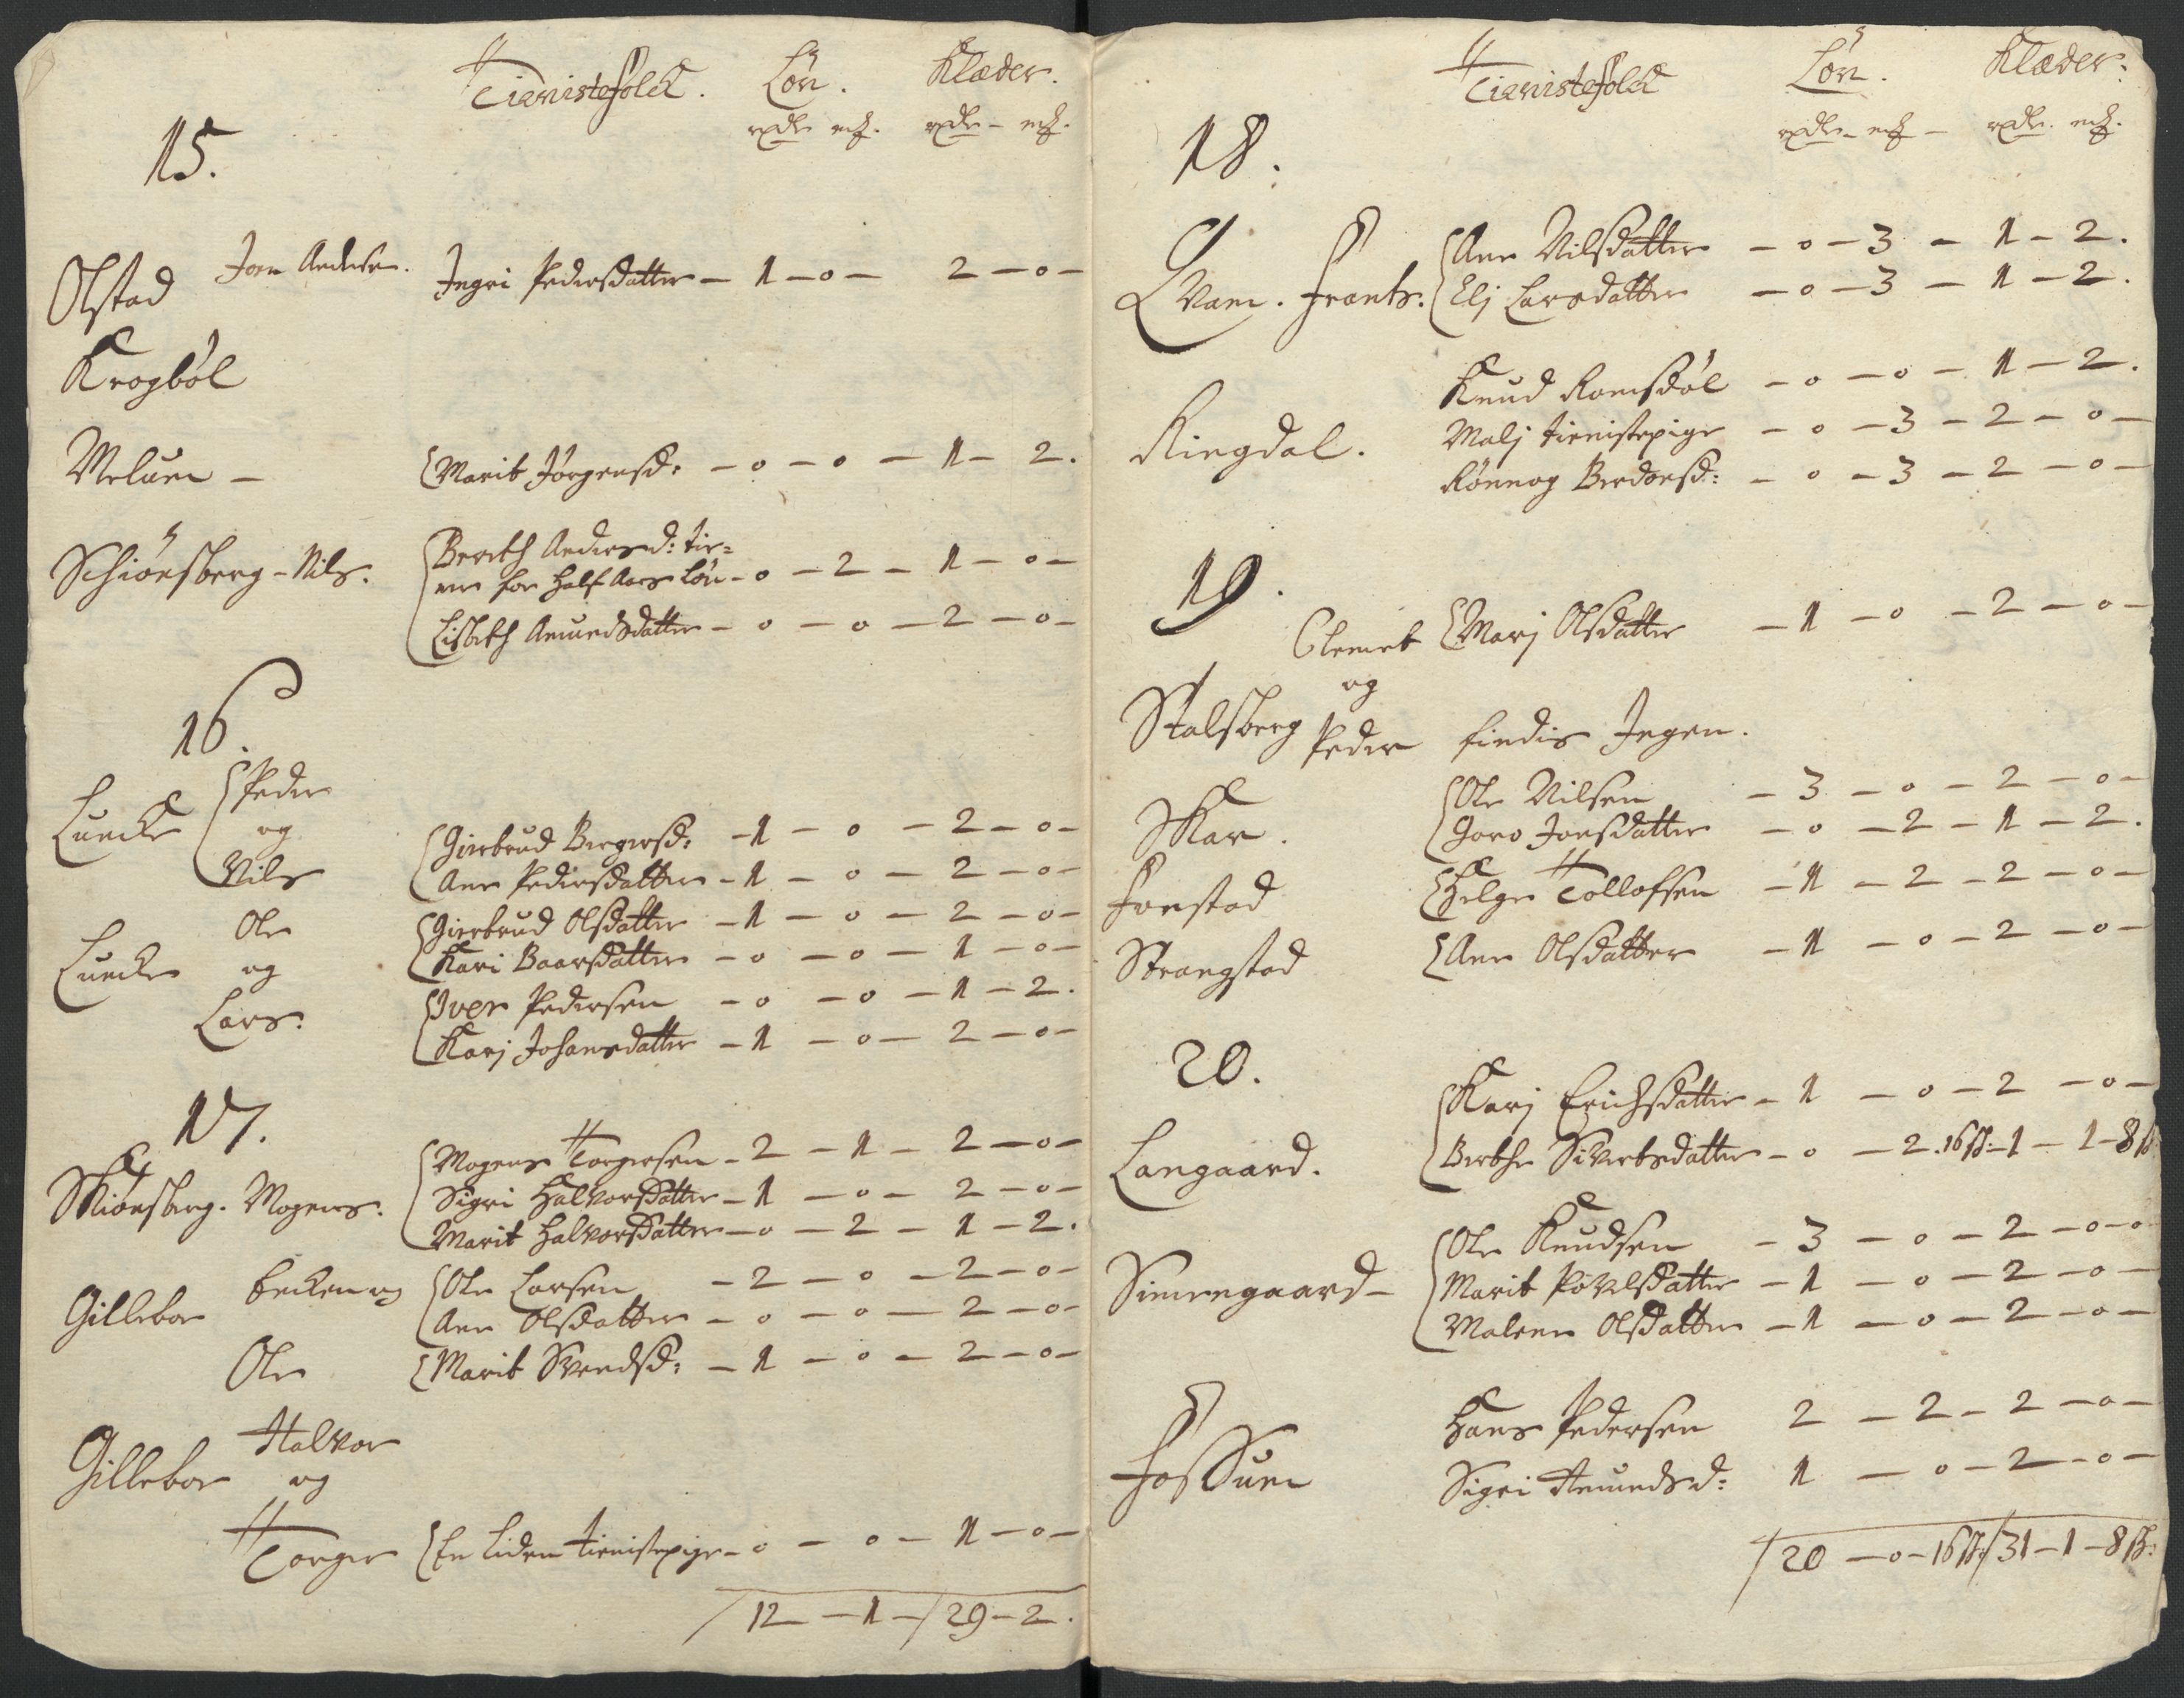 Tienistefolck. Løn. Klæder.
rxdr mȝ. rxdr - mȝ.
15.
Olstad Joen Andersen. Ingri Pedersdatter - 1 - 0 - 2 - 0 -
Krogbøl
Meluen - Marit Jørgensd: - 0 - 0 - 1 - 2.
Schiønsberg - Nils. Berith Andersd: tie=
ner for halft Aars Løn - 0 - 2 - 1 - 0 -
Lisbeth Amundsdatter - 0 - 0 - 2 - 0 -
16.
Luncke Peder
og
Nils
Giertrud Bergersd: - 1 - 0 - 2 - 0 -
Ane Pedersdatter - 1 - 0 - 2 - 0 -
Luncke Ole
og
Lars:
Giertrud Olsdatter - 1 - 0 - 2 - 0 -
Kari Baarsdatter - 0 - 0 - 1 - 0 -
Iver Pedersen - 0 - 0 - 1 - 2.
Karj Johansdatter - 1 - 0 - 2 - 0 -
17.
Skiønsberg. Mogens. Mogens Torgersen - 2 - 1 - 2 - 0 -
Sigri Halvorsdatter - 1 - 0 - 2 - 0 -
Marit Halvorsdatter - 0 - 2 - 1 - 2.
Gillebor og Ole Larsen - 2 - 0 - 2 - 0 -
Ane Olsdatter - 0 - 0 - 2 - 0 -
Ole Marit Svendsd: - 1 - 0 - 2 - 0 -
Gillebor Halvor
og
Torger En liden tienistepige - 0 - 0 - 1 - 0 -
/ 12 - 1 - / 29 - 2.
Tienistefolck Løn. Klæder.
rxdr - mȝ - rxdr. mȝ.
18.
Qvam. Frants. Ane Nilsdatter - 0 - 3 - 1 - 2.
Elj Larsdatter - 0 - 3 - 1 - 2.
Ringdal. Knud Romsdøl - 0 - 0 - 1 - 2.
Malj tienistepige - 0 - 3 - 2 - 0 -
Rønnog Berdorsd: - 0 - 3 - 2 - 0 -
19.
Clemet Marj Olsdatter - 1 - 0 - 2 - 0 -
og
Stalsberg Peder findis Ingen.
Skar. Ole Nilsen - 3 - 0 - 2 - 0 -
Goro Jonsdatter - 0 - 2 - 1 - 2.
Fonstad Helge Tollofsen - 1 - 2 - 2 - 0 -
Strangstad Ane Olsdatter - 1 - 0 - 2 - 0 -
20.
Langaard. Karj Erichsdatter - 1 - 0 - 2 - 0 -
Berthe Sivertsdatter - 0 - 2. 16ß - 1 - 1 - 8ß
Simengaard - Ole Knudsen - 3 - 0 - 2 - 0 - 0
Marit Povelsdatter - 1 - 0 - 2 - 0 -
Malene Olsdatter - 1 - 0 - 2 - 0 -
Fossum Hans Pedersen 2 - 2 - 2 - 0 -
Sigri Amundsd: 1 - 0 - 2 - 0 -
/ 20 - 0 - 16ß / 31 - 1 - 8ß: